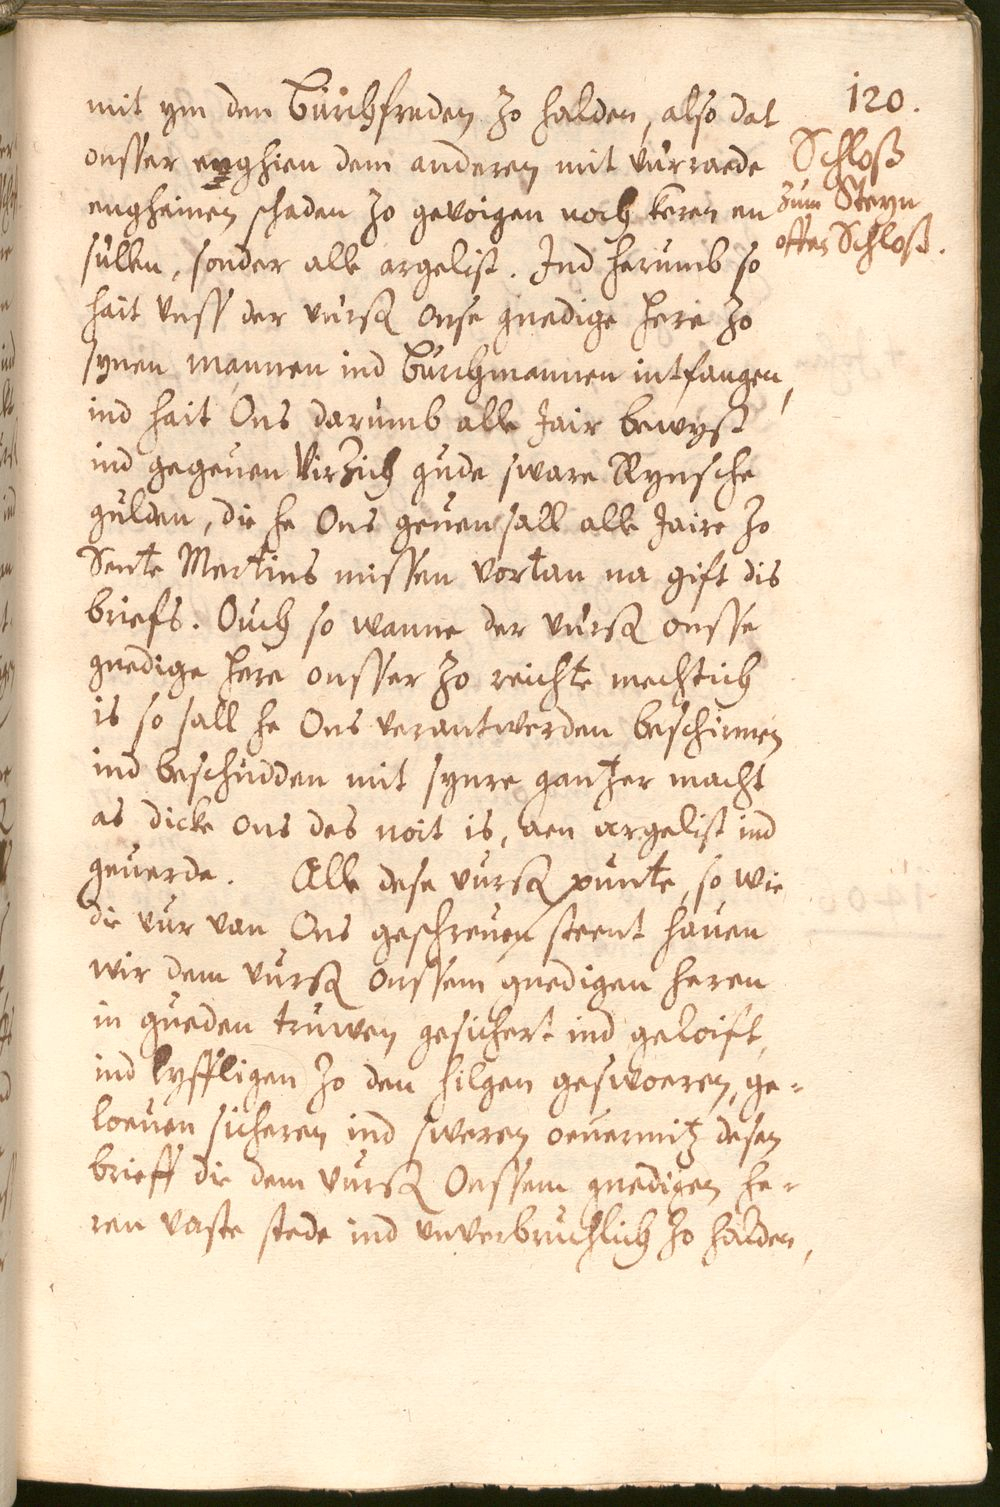 120.
Schloß
zum Steyn
offen Schloß.
mit ym den Burchfreden zo halden, also dat
onsser enghien dem anderen mit vurraede
engheinen schaden zo gevoigen noch keren en
sullen, sonder alle argelist. Ind herumb so
hait vnss der vursz onse gnedige here zo
synen mannen ind Burchmannen intfangen,
ind hait Ons darumb alle Jair bewyst
ind gegeuen Virzich gude sware Rynsche
gulden, die he Ons geuen sall alle Jaire zo
Sente Mertins missen vortan na gift dis
briefs. Ouch so wanne der vursz onsse
gnedige here onsser zo reichte mechtich
is so sall he Ons verantwerden beschirmen
ind beschudden mit synre gantzer macht
as dicke ons des noit is, aen argelist ind
geuerde. Alle dese vursz punte, so wie
die vur van Ons geschreuen steent hauen
wir dem vursz onssem gnedigen heren
in gueden truwen gesichert ind geloift,
ind lyffligen zo den hilgen geswoeren, ge-
loeuen sicheren ind sweren oeuermitz desen
brieff die dem vursz Onssem gnedigen he-
ren vaste stede ind vnverbruchlich zo halden,